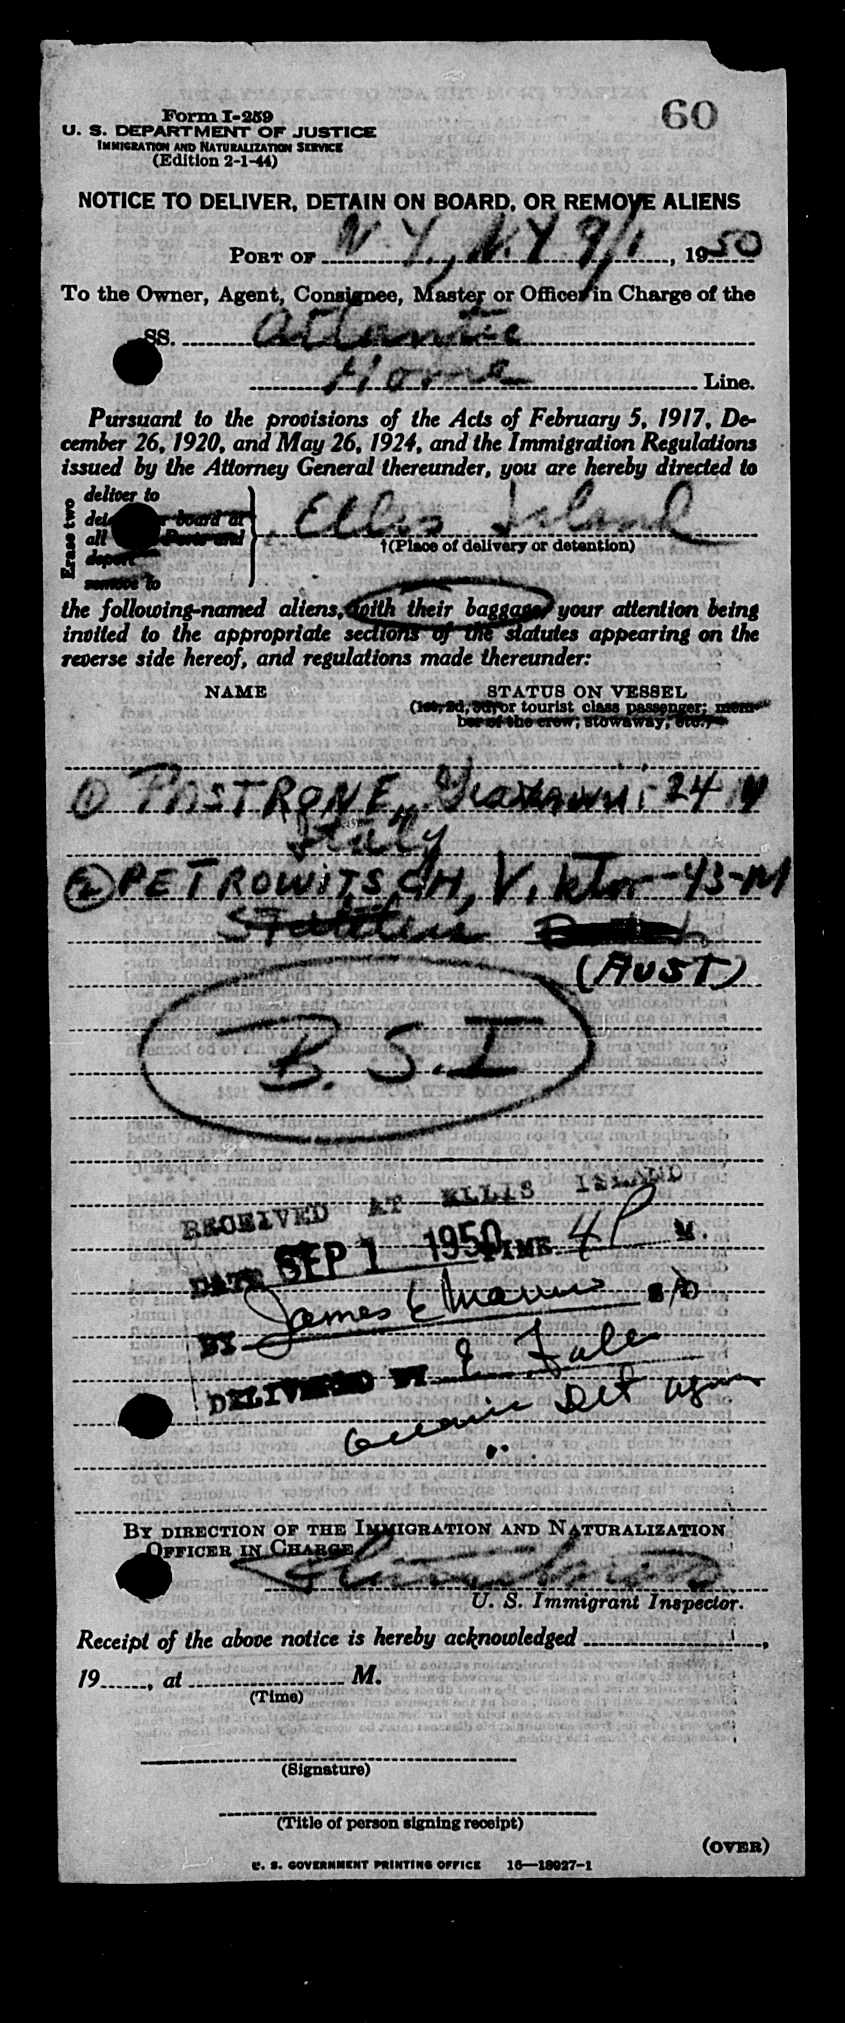 60
Form I-259
U. S. DEPARTMENT OF JUSTICE
IMMIGRATION AND NATURALIZATION SERVICE
(Edition 2-1-44)
NOTICE TO DELIVER, DETAIN ON BOARD, OR REMOVE ALIENS
PORT OF N.Y., N.Y 9/1, 1950
To the Owner, Agent, Consignee, Master or Officer in Charge of the
SS. Atlantic
Home Line.
Pursuant to the provisions of the Acts of February 5, 1917, De-
cember 26, 1920, and May 26, 1924, and the Immigration Regulations
issued by the Attorney General thereunder, you are hereby directed to
Erase two
deliver to
board at
all Ports and
deport
remove to
Ellis Island
†(Place of delivery or detention)
the following-named aliens, with their baggage, your attention being
invited to the appropriate sections of the statutes appearing on the
reverse side hereof, and regulations made thereunder:
NAME STATUS ON VESSEL
(1st, 2d, 3d, or tourist class passenger; mem-
ber of the crew; stowaway, etc.)
① PASTRONE, Giovanni 24 M
Italy
② PETROWITSCH, Viktor-43-M
Stateless
(AUST)
B.S.I
RECEIVED AT ELLIS ISLAND
DATE SEP 1 1950 TIME 4P M.
BY James E
DELIVERED BY
Det
BY DIRECTION OF THE IMMIGRATION AND NATURALIZATION
OFFICER IN CHARGE
U. S. Immigrant Inspector.
Receipt of the above notice is hereby acknowledged ,
19 , at M.
(Time)
(Signature)
(Title of person signing receipt)
(OVER)
U. S. GOVERNMENT PRINTING OFFICE 16—18027-1